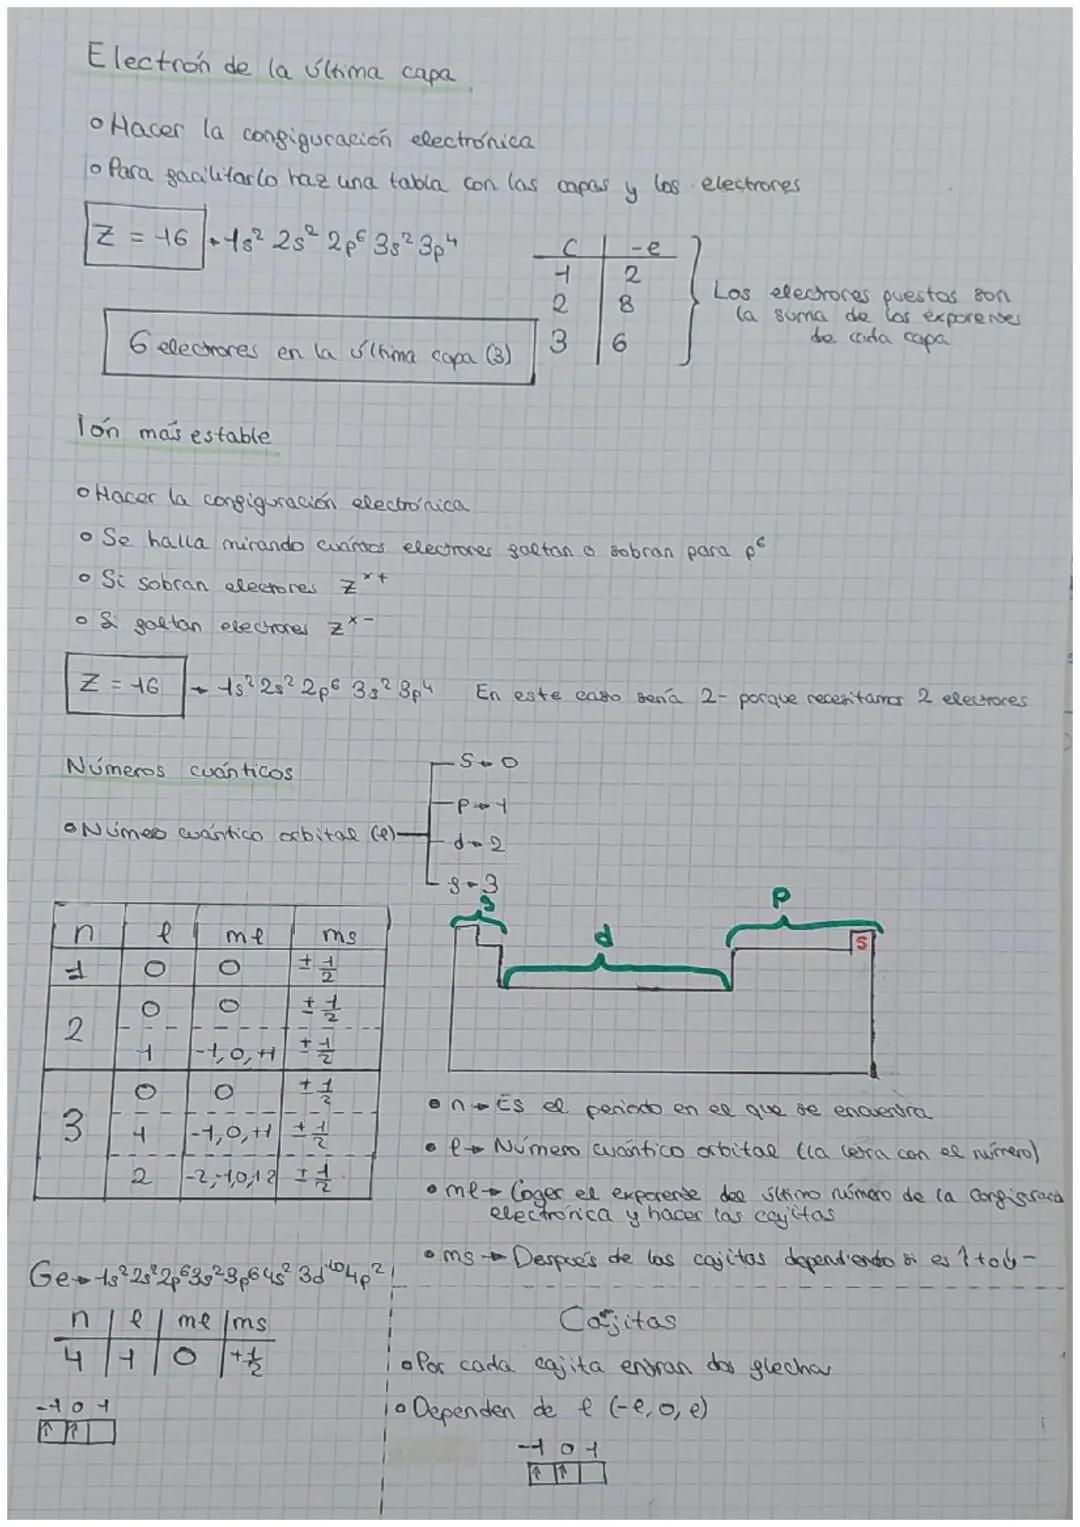 Electrón de la última capa
o Hacer la configuración electrónica
o Para facilitarlo haz una tabla con las capas y los electrones
Z = 16 → 1s² 2s² 2p⁶ 3s² 3p⁴
C | -e
1 | 2
2 | 8
3 | 6
Los electrones puestos son
la suma de los exponentes
de cada capa
6 electrones en la última capa (3)
Ión más estable
o Hacer la configuración electrónica
o Se halla mirando cuántos electrones faltan o sobran para p⁶
o Si sobran electrones Z ˣ⁺
o Si faltan electrones Z ˣ⁻
Z = 16 → 1s² 2s² 2p⁶ 3s² 3p⁴ En este caso sería 2- porque necesitamos 2 electrones
Números cuánticos
o Número cuántico orbital (l)
s → 0
p → 1
d → 2
f → 3
n | l | ml | ms
1 | 0 | 0 | ± 1/2
2 | 0 | 0 | ± 1/2
1 | -1, 0, +1 | ± 1/2
3 | 0 | 0 | ± 1/2
1 | -1, 0, +1 | ± 1/2
2 | -2,-1,0,1 2 | ± 1/2
s
d
p
S
• n → Es el periodo en el que se encuentra
• l → Número cuántico orbital (la letra con el número)
• ml → Coger el exponente del último número de la configuració
electrónica y hacer las cajitas
• ms → Después de las cajitas dependiendo si es ↑ + o ↓ -
Ge → 1s² 2s² 2p⁶ 3s² 3p⁶ 4s² 3d¹⁰ 4p²
n | l | ml | ms
4 | 1 | 0 | + 1/2
-1 0 1
↑ ↑
Cajitas
o Por cada cajita entran dos flechas
o Dependen de l (-l, 0, l)
-1 0 1
↑ ↑